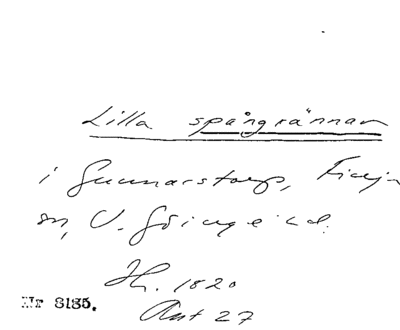 Lilla spångrännan
i Gunnarstorp, Finja
sn, V. Göinge hd.
Hs. 1820
Ant 27
Nr 8185.